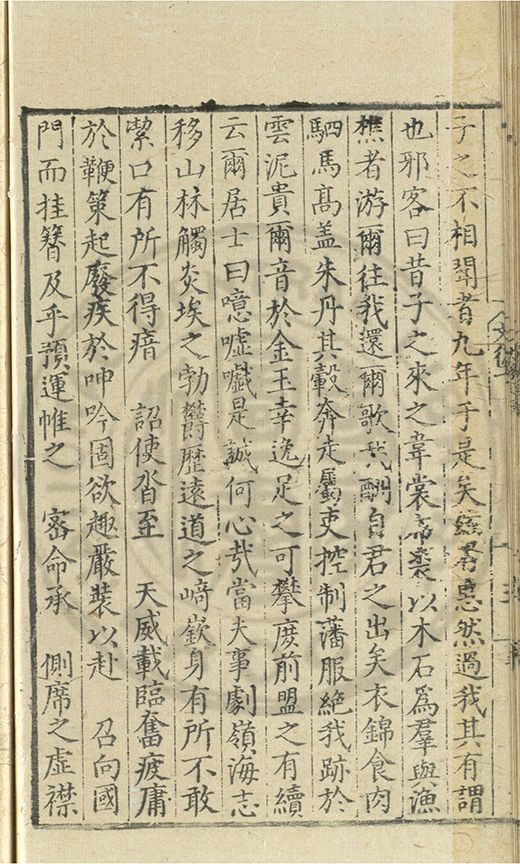 子之不相聞者九年于是矣緜君惠然過我其有謂
也邪客曰昔子之來之韋裳帶褱以木石爲羣與漁
樵者游爾往我還爾歌我酬自君之出矣衣錦食肉
駟馬高盖朱丹其轂奔走屬吏控制藩服絶我跡於
雲泥貴爾音於金玉幸逸足之可攀庶前盟之有續
云爾居士曰噫嘘嚱是誠何心哉當夫事劇嶺海志
移山林觸炎埃之勃欝歷遠道之﨑嶔身有所不敢
潔口有所不得瘖 詔使沓至 天威載臨奮疲庸
於鞭策起廢疾於呻吟固欲趣嚴裝以赴 召向國
門而挂簪及乎預運帷之 密命承 側席之虚襟